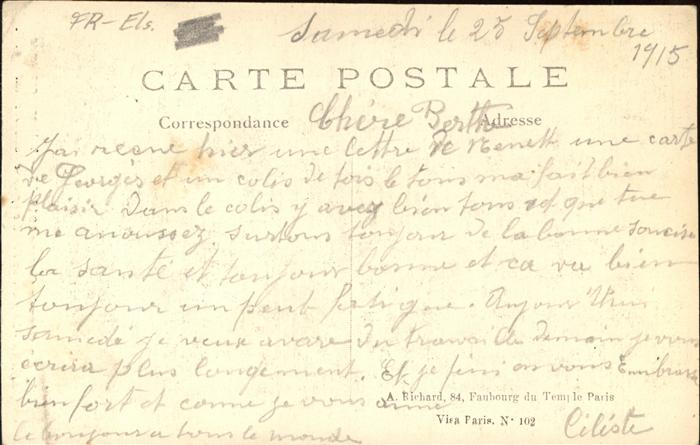 FR-Els.
Samedi le 25 Septembre
1915
CARTE POSTALE
Correspondance Adresse
Chére Berthe
J'ai reçue hier une lettre de une carte
de Georges et un colis de tois le tous ma fait bien
plaisir dans le colis y avez bien tous que tue
me anousez surtous toujour de la bonne
la santé et toujour bonne et ca va bien
toujour un peut fatigue. Aujour
samedé je veux avare du travai de demain je vous
écrira plus longement. Et je fini on vous Embrasse
bien fort et comme je vous aime
Céléste
le bonjour a tous le monde
A. Richard, 84, Faubourg du Temple Paris
Visa Paris. N° 102